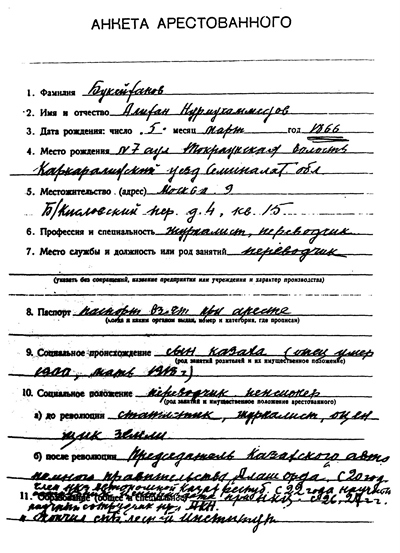 АНКЕТА АРЕСТОВАННОГО
1. Фамилия Букейханов
2. Имя и отчество Алихан Нурмухаммедов
3. Дата рождения: число „5“ месяц март год 1866
4. Место рождения №7 аул Токраунская волость
Каркаралинский уезд Семипалат обл
5. Местожительство (адрес) Москва 9
Б/Кисловский пер. д.4, кв. 15
6. Профессия и специальность журналист, переводчик
7. Место службы и должность или род занятий переводчик
(указать без сокращений, название предприятия или учреждения и характер производства)
8. Паспорт паспорт взят при аресте
(когда и каким органом выдан, номер и категория, где прописан)
9. Социальное происхождение сын казака (отец умер
(род занятий родителей и их имущественное положение)
1900, мать 1918 г)
10. Социальное положение переводчик пенсионер
(род занятий и имущественное положение арестованного)
а) до революции статистик, журналист, оцен
щик земли
б) после революции Председатель Казакского авто
номного правительства Алаш орда. С 20 год
член с 22 года научный
11. Образование (общее и специальное) с 26, 27 г.
научный сотрудник при АКН.
Окончил лесной институт